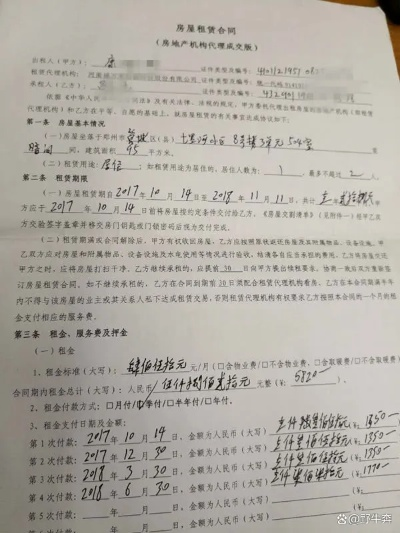 房屋租赁合同
(房地产机构代理成交版)
出租人(甲方): 证件类型及编号:
租赁代理机构: 有限公司
承租人(乙方): 证件类型及编号:
依据《中华人民共和国 法》及有关法律、法规的规定,甲方委托代理出租房屋的
代理机构)和乙方在平等、自愿的基础上,就房屋租赁的有关事宜达成协议如下:
第一条 房屋基本情况
(一)房屋坐落于郑州市 区(县) 8号楼3单元504室
间,建筑面积 95 平方米。
(二)租赁用途:居住;如租赁用途为居住的,居住人数为: 1 ,最多不超过 2 人
第二条 租赁期限
(一)房屋租赁期自2017年10月14日至2018年11月11日,共计
方应于2017年10月14日前将房屋按约定条件交付给乙方。《房屋交割清单》(见附件一)经甲乙
方交验签字盖章并移交房门钥匙或门锁密码后视为交付完成。
(二)租赁期满或合同解除后,甲方有权收回房屋,乙方应按照原状返还房屋及其附属物品、设备设施。甲
乙双方应对房屋和附属物品、设备设施及水电使用等情况进行验收,结清各自应当承担的费用。乙方将房屋交还
甲方之时,应将房屋打扫干净。乙方继续承租的,应提前 30 日向甲方提出续租要求,协商一致后双方重新签
订房屋租赁合同。如不继续承租的,乙方在合同到期前30日须配合租赁代理机构看房。乙方在本合同期满半年
内不得与该房屋的业主或其关系人私下达成租赁交易,否则租赁代理机构有权要求乙方按照本合同的一个月的租
金支付相应的服务费。
第三条 租金、服务费及押金
(一)租金
1、租金标准(大写): 肆佰伍拾元 元/月(□含物业费/□不含物业费、□含取暖费/□不含取暖费)
合同期内租金总计(大写):人民币/伍仟捌佰贰拾元 元整(¥: 5820 )
2、租金付款方式:□月付/□季付/□半年付/□年付。
3、租金支付日期及金额:
第1次付款: 2017年10月14日,金额为人民币(大写) (¥: 1350
第2次付款: 2017年12月30日,金额为人民币(大写) 壹仟叁佰伍拾元 (¥: 1350
第3次付款: 2018年3月30日,金额为人民币(大写) 壹仟叁佰伍拾元 (¥: 1350
第4次付款: 2018年6月30日,金额为人民币(大写) 壹仟柒佰柒拾元 (¥: 1770
第5次付款: 年 月 日,金额为人民币(大写) (¥:
第6次付款: 年 月 日,金额为人民币(大写)